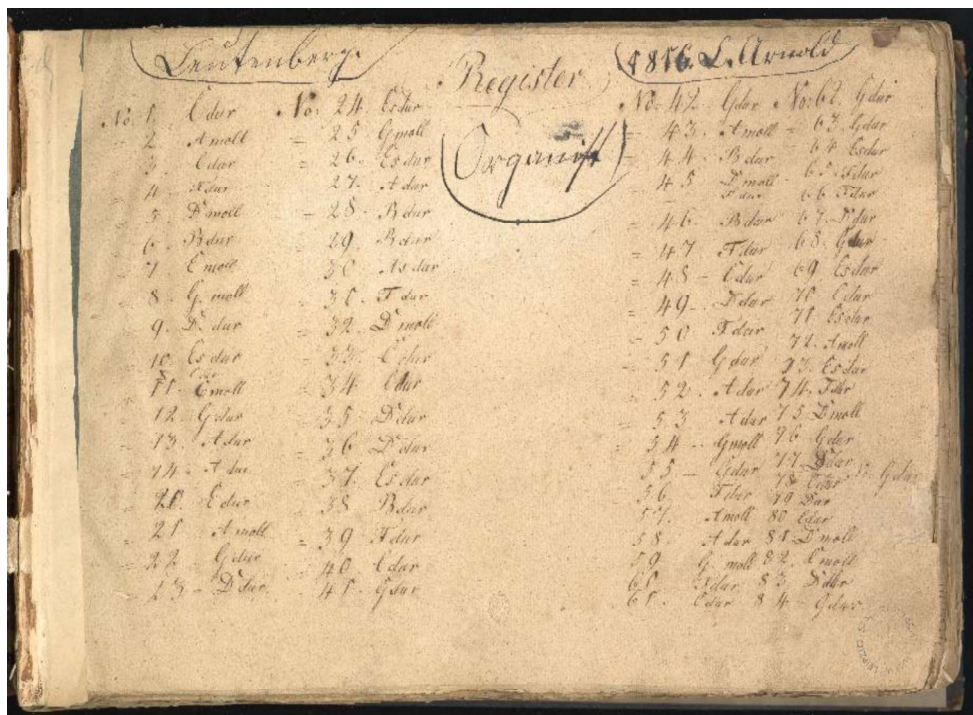 Leutenberg.
Register
1816. L. Arnold
Organist
No: 1. C dur
= 2. A moll
= 3 C dur
= 4
= 5. D moll
= 6. B dur
= 7 E moll
= 8. G. moll
= 9. D. dur
= 10. Es dur
= 11. E moll
= 12. G dur
= 13. A dur
= 14.
21 A moll
= 22 G dur
= 23 - D dur
No: 24 Es dur
= 25 G moll
= 26. Es dur
27. A dur
= 28. B dur
= 29. B dur
= 30 As dur
= 31. F dur
= 32. D moll
= 33. C dur
= 34. C dur
= 35. D dur
= 36 D dur
= 37. Es dur
= 38 B dur
= 39. F dur
= 40. C dur
= 41. G dur
No: 42. G dur
= 43. A moll
= 44. B dur
= 45 D moll
F dur
= 46. B dur
= 47 F dur
= 48 - C dur
= 49.
= 50 F dur
= 51 G dur
= 52. A dur
= 53 A dur
= 54 - G moll
= 55 - G dur
56 F dur
57. A moll
58. A dur
59 G. moll
60
61. C dur
No: 62. G dur
= 63. G dur
64 Es dur
65. F dur
66 F dur
67. D dur
68. G dur
69 Es dur
70 C dur
71 Es dur
72. A moll
73. Es dur
74. F dur
75 D moll
76 G dur
77 D dur
78
79
80 C dur
81. D moll
82. E moll
83. D dur
84 - G dur